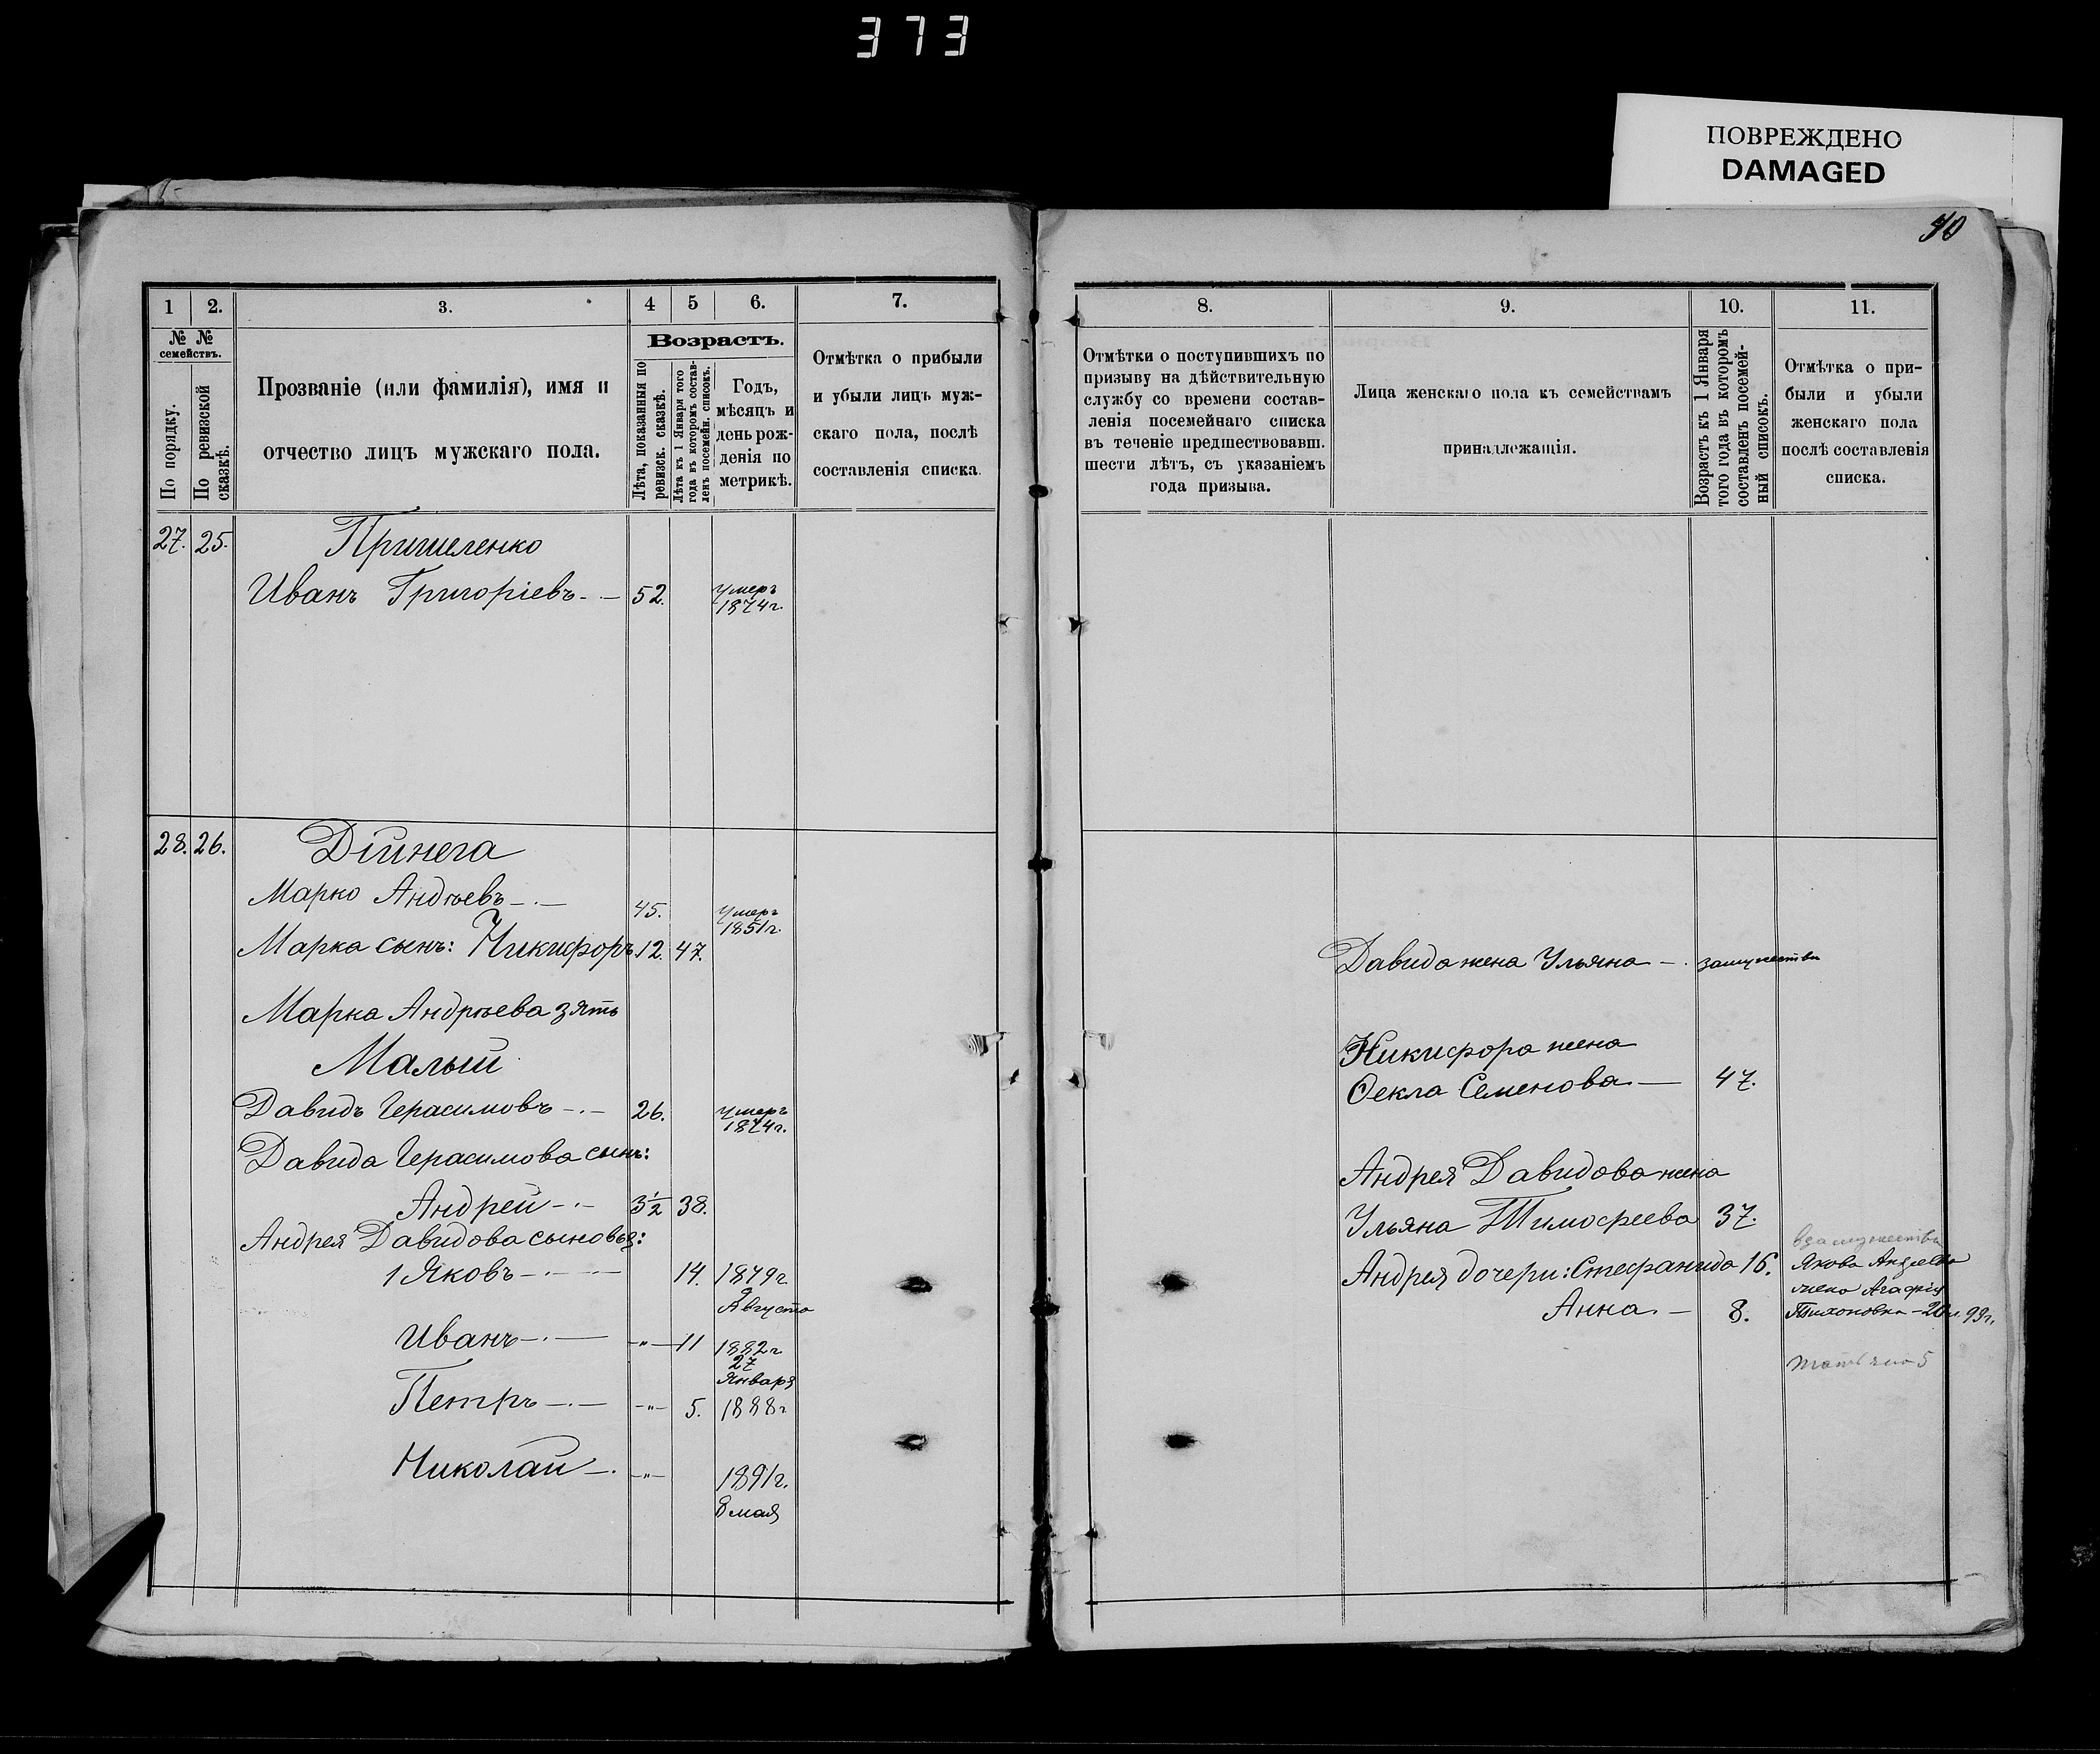 373
ПОВРЕЖДЕНО
DAMAGED
1
2.
3.
4
5
6.
7.
№ №
семействъ.
По порядку.
По ревизской
сказкѣ.
Прозваніе (или фамилія), имя и
отчество лицъ мужскаго пола.
Возрастъ.
Лѣта, показанныя по
ревизск. сказкѣ.
Лѣта къ 1 Января того
года въ которомъ состав-
ленъ посемейн. списокъ.
Годъ,
мѣсяцъ и
день рож-
денія по
метрикѣ.
Отмѣтка о прибыли
и убыли лицъ муж-
скаго пола, послѣ
составленія списка.
27. 25.
Пришеленко
Иванъ Григоріевъ - - 52. умеръ
1874г.
28. 26.
Дійнега
Марко Андѣевъ - . - 45. умеръ
1851г.
Марка сынъ: Никифоръ 12. 47.
Марка Андрѣева зять
Малый
Давидъ Герасимовъ - . - 26. умеръ
1874г.
Давида Герасимова сынъ:
Андрей - . - 3 1/2 38.
Андрея Давидова сыновья:
1 Яковъ - . - 14. 1879г
9
Августа
Иванъ - . - - " - 11 1882г
27
Января
Петръ - . - - " - 5. 1888г
Николай - . - " - 1891г.
8 мая
8.
9.
10.
11.
Отмѣтки о поступившихъ по
призыву на дѣйствительную
службу со времени состав-
ленія посемейнаго списка
въ теченіе предшествовавш.
шести лѣтъ, съ указаніемъ
года призыва.
Лица женскаго пола къ семействамъ
принадлежащія.
Возрастъ къ 1 Января
того года въ которомъ
составленъ посемей-
ный списокъ.
Отмѣтка о при-
были и убыли
женскаго пола
послѣ составленія
списка.
Давида жена Ульяна - . замужестви
Никифора жена
Ѳекла Семенова - 47.
Андрея Давидова жена
Ульяна Тимофеева 37.
Андрея дочери: Стефанида 16.
Анна. - 8.
взамужестви
Якова Андреева
жена Агафія
Тихоновна - 20л. 99г.
Татьяна 5